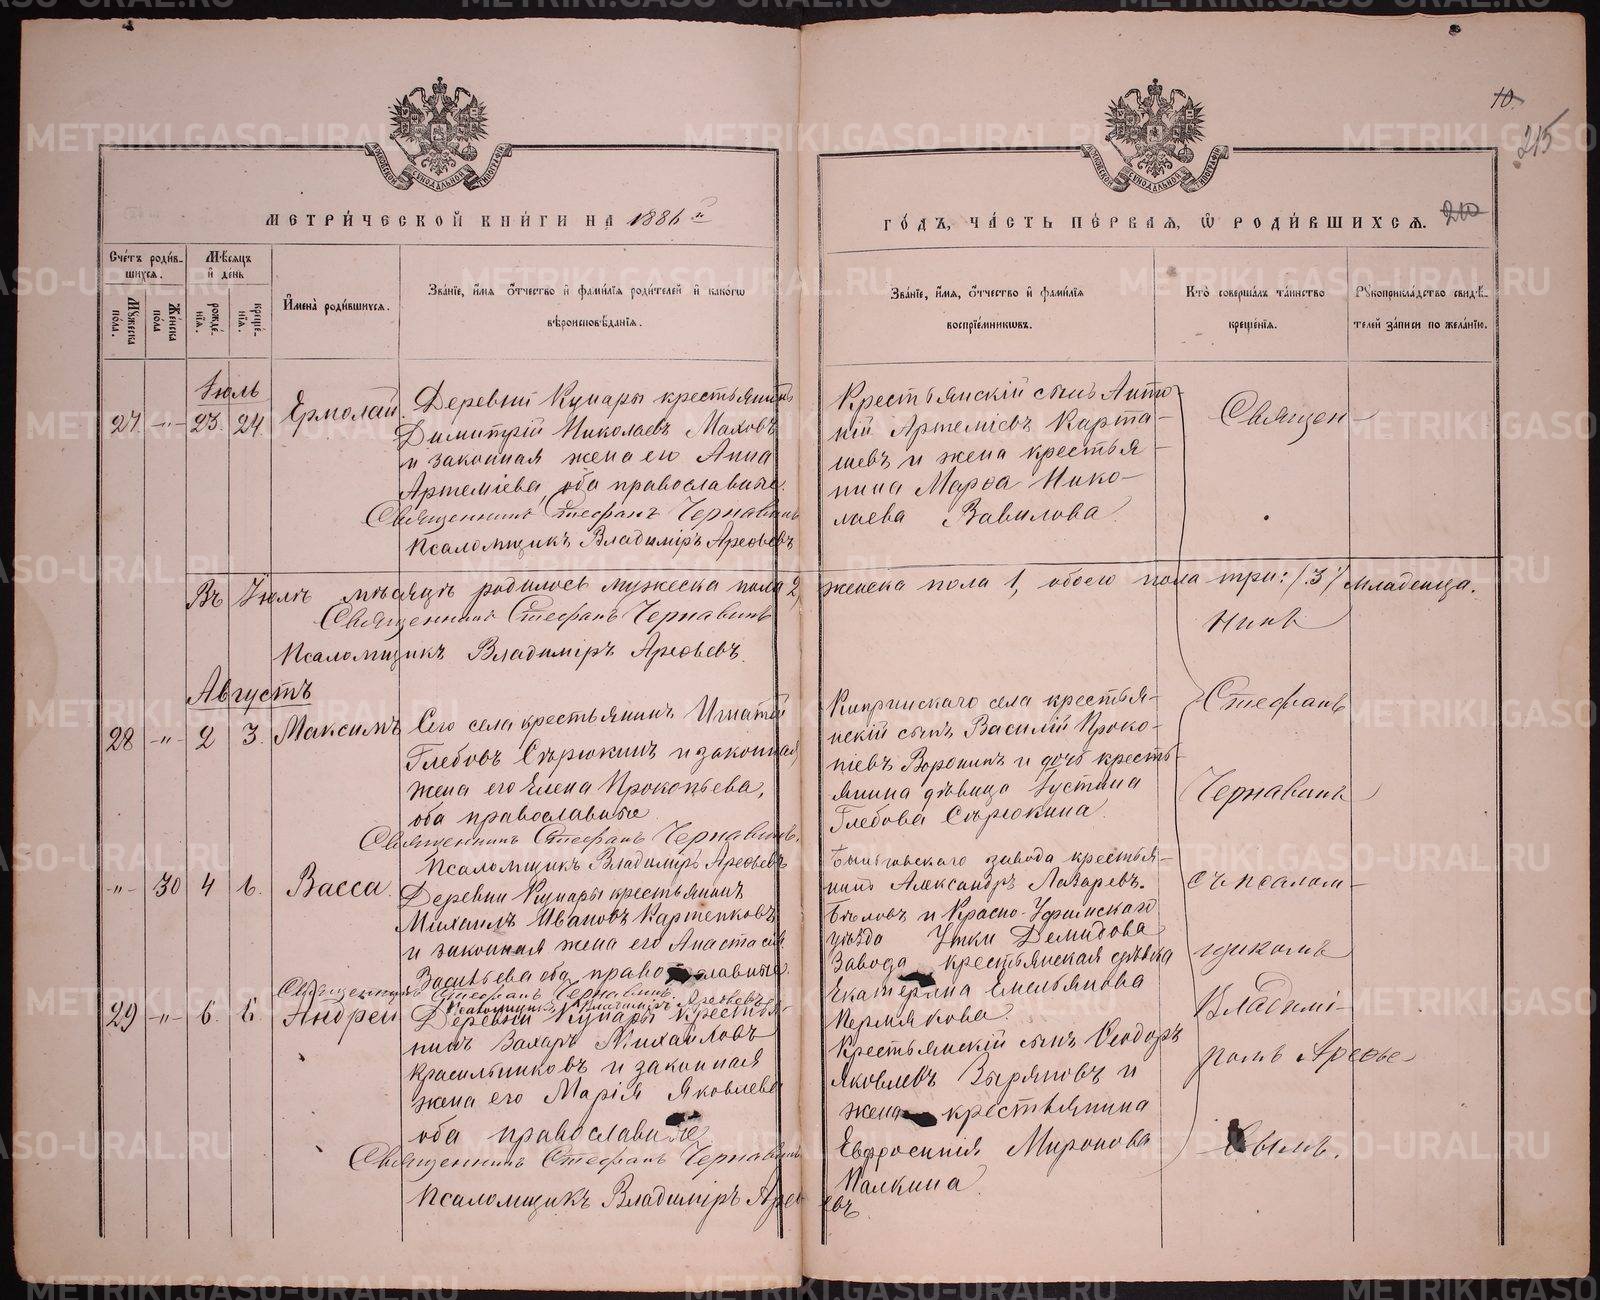 10.
215
210
МЕТРИ́ЧЕСКОЙ КНИ́ГИ НА 1886 й
ГО́ДЪ, ЧА́СТЬ ПЕ́РВАЯ, Ѡ РОДИ́ВШИХСѦ.
Сче́тъ роди́в-
шихся.
Мѣ́сяцъ
и́ день
Му́жеска
по́ла.
Же́нска
по́ла
рожде́-
нїя.
креще́-
нїя.
И҆мена̀ роди́вшихся.
Зва́нїе, и҆́мя ѻ҆́тчество и҆ фами́лїя роди́телей и҆ како́гѡ
вѣроисповѣ́данїя.
Зва́нїе, и҆́мя, ѻ҆́тчество и҆ фами́лїя
воспрїе́мниковъ.
Кто̀ соверша́лъ та́инство
креще́нїя.
Рꙋкоприкла́дство свидѣ́-
телей за́писи по жела́нїю.
Іюль
27 -"- 23. 24. Ермолай.
Деревни Кунары крестьянинъ
Димитрій Николаевъ Маховъ
и законная жена его Анна
Артеміева, оба православные.
Священникъ Стефанъ Чернавинъ
Псаломщикъ Владиміръ Арефьевъ
Крестьянскій сынъ Анто-
ній Артеміевъ Карта-
шевъ и жена крестья-
нина Марѳа Нико-
лаева Вавилова.
Священ-
Въ Іюлѣ мѣсяцѣ родилось мужеска пола 2, женска пола 1, обоего пола три: /3/ младенца.
Священникъ Стефанъ Чернавинъ
Псаломщикъ Владиміръ Арефьевъ.
никъ
Августъ
28 -"- 2 3. Максимъ
Сего села крестьянинъ Игнатій
Глебовъ Сѣрюкинъ и законная
жена его Елена Прокопьева,
оба православные
Священникъ Стефанъ Чернавинъ.
Псаломщикъ Владиміръ Арефьевъ
Кипринскаго села крестья-
нскій сынъ Василій Проко-
піевъ Воронинъ и дочь кресть-
янина дѣвица Іустина
Глебова Сѣрюкина.
Стефанъ
Чернавинъ
-"- 30 4 6. Васса.
Деревни Кунары крестьянинъ
Михаилъ Ивановъ Картенковъ
и законная жена его Анастасия
Васильева оба православные.
Священникъ Стефанъ Чернавинъ.
Псаломщикъ Владиміръ Арефьевъ
Быньговскаго завода крестья-
нинъ Александръ Лазаревъ.
Бѣловъ и Красно-Уфимскаго
уѣзда Утки Демидова
Завода крестьянская дѣвка
Екатерина Емельянова
Пермякова
съ псалом-
щикомъ
29 -"- 6. 6. Андрей
Деревни Кунары крестья-
нинъ Захаръ Михаиловъ
Красильниковъ и законная
жена его Марія Яковлева
оба православные
Священникъ Стефанъ Чернавинъ
Псаломщикъ Владиміръ Арефьевъ
Крестьянскій сынъ Ѳеодоръ
Яковлевъ Зыряновъ и
жена крестьянина
Евфросинія Миронова
Палкина
Владимі-
ромъ Арефье-
вымъ.